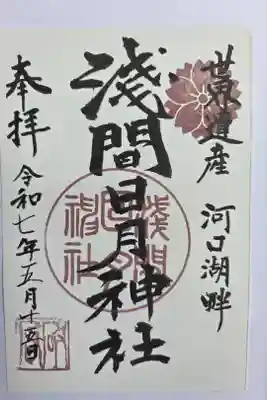 世界遺産 河口湖畔
淺間日月神社
淺間日月神社
奉拝 令和七年五月十五日